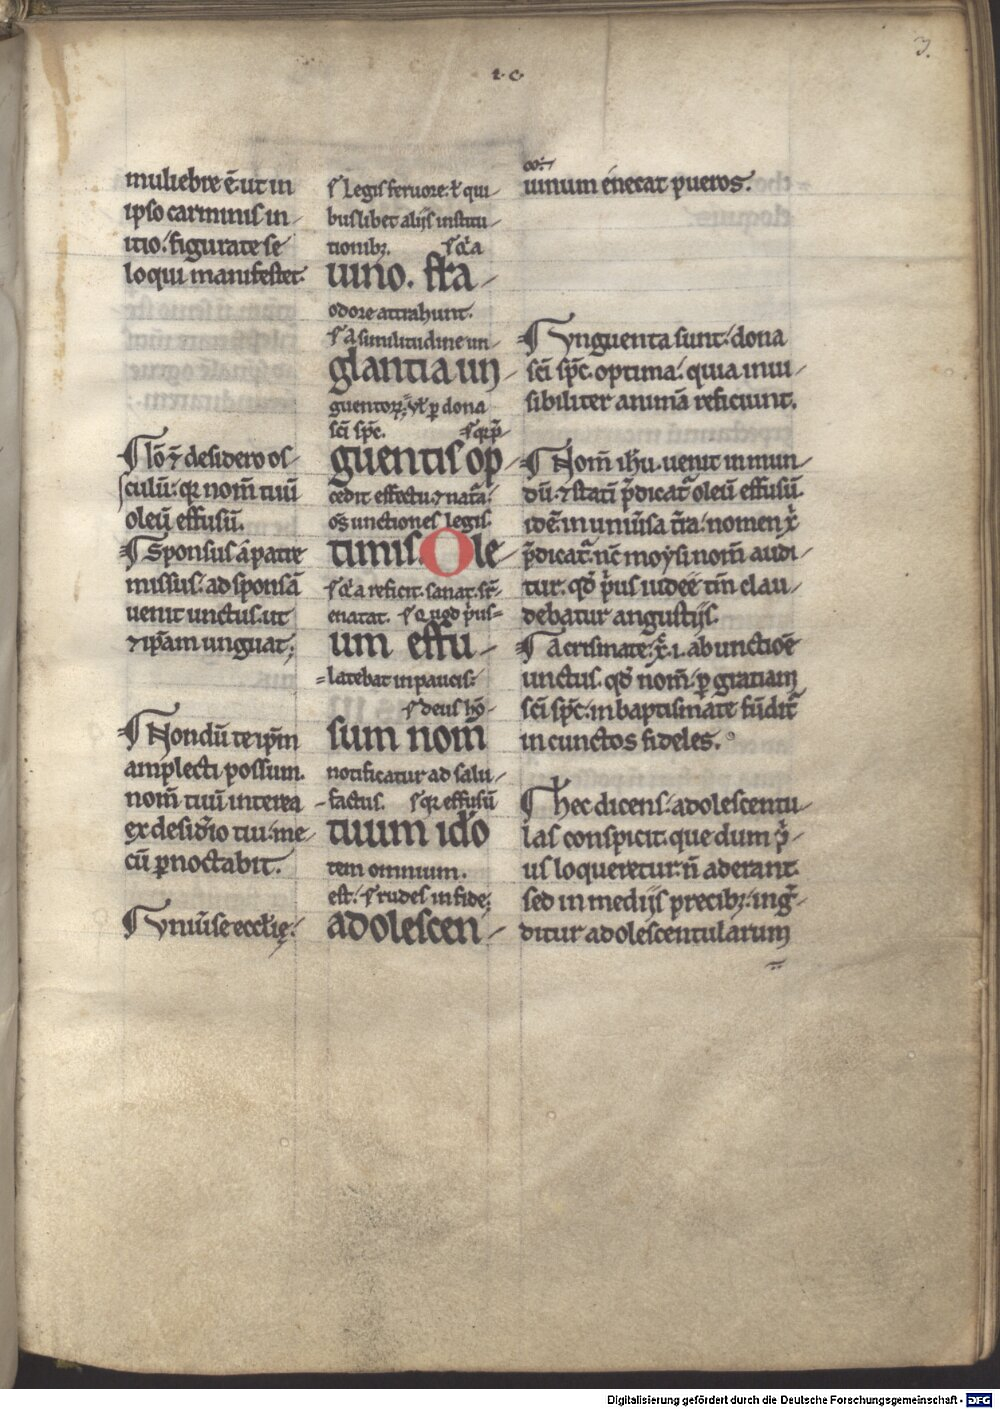 3.
.I.C.
muliebre ē. ut in
ipso carminis in-
itio. figurate se
loqui manifestet.
Iō ⁊ desidero os-
culū. qr nom̄ tuū
oleū effusū.
Sponsus a patre
missus. ad sponsā
uenit unctus. ut
⁊ ip̄am unguat;
Nondū te ip̄m
amplecti possum.
nom̄ tuū interea
ex desiđio tui. me-
cū pnoctabit.
Vniuise eccłię.
Legis feruore. ł qui-
buslibet alijs institu-
tionibꝫ. qͥa
uino. fra-
odore attrahunt.
a similitudine un-
glantia un-
guentoꝝ. uł p dona
sc̄i sp̄c.
guentis op-
cedit effectu ⁊ nat̄a.
om̄s unctiones legis.
timis. Ole-
qͥa reficit. sanat.
um effu-
latebat in paucis.
deus
sum nom̄
notificatur ad salu-
factus. qr effusū
tuum iđo
tem omnium.
est. rudes in fide;
adolescen-
uinum enecat pueros.
Vnguenta sunt. dona
sc̄i sp̄c. optima. quia inui-
sibiliter animā reficiunt.
Nom̄ ihu. uenit in mun-
dū. ⁊ statī p̄dicat̄ oleū effusū.
idē in uniūsa t̄ra. nomen xͥ
p̄dicat̄. nc̄ moysi nom̄ audi-
tur. qđ pͥus iudeę tm̄ clau-
debatur angustijs.
A crismate. xͥ. i. ab unctiōe
unctus. qđ nom̄. p gratiam
sc̄i sp̄c. in baptismate fūdit̄
in cunctos fideles.
hec dicens. adolescentu-
las conspicit. que dum pͥ-
us loqueretur. n̄ aderant.
sed in medijs precibꝫ. ingͣ-
ditur adolescentularum
Digitalisierung gefördert durch die Deutsche Forschungsgemeinschaft - DFG